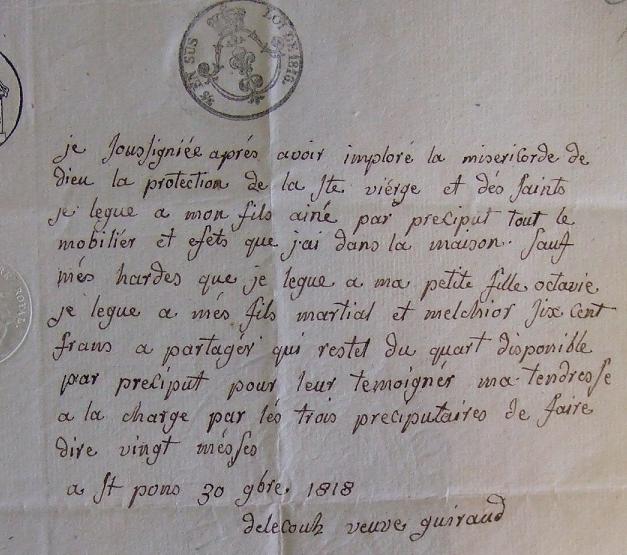 ⅖ EN SUS
LOI DE 1816.
ROYAL
je soussigniée aprés avoir imploré la misericorde de
dieu la protection de la ste viérge et dés saints
je legue a mon fils ainé par preciput tout le
mobiliér et efets que j'ai dans la maison. sauf
més hardes que je legue a ma petite fille octavie
je legue a més fils martial et melchior six cent
frans a partager qui restet du quart disponible
par preciput pour leur temoignér ma tendresse
a la charge par lés trois preciputaires de faire
dire vingt mésses
a st pons 30 9bre. 1818
veuve guiraud